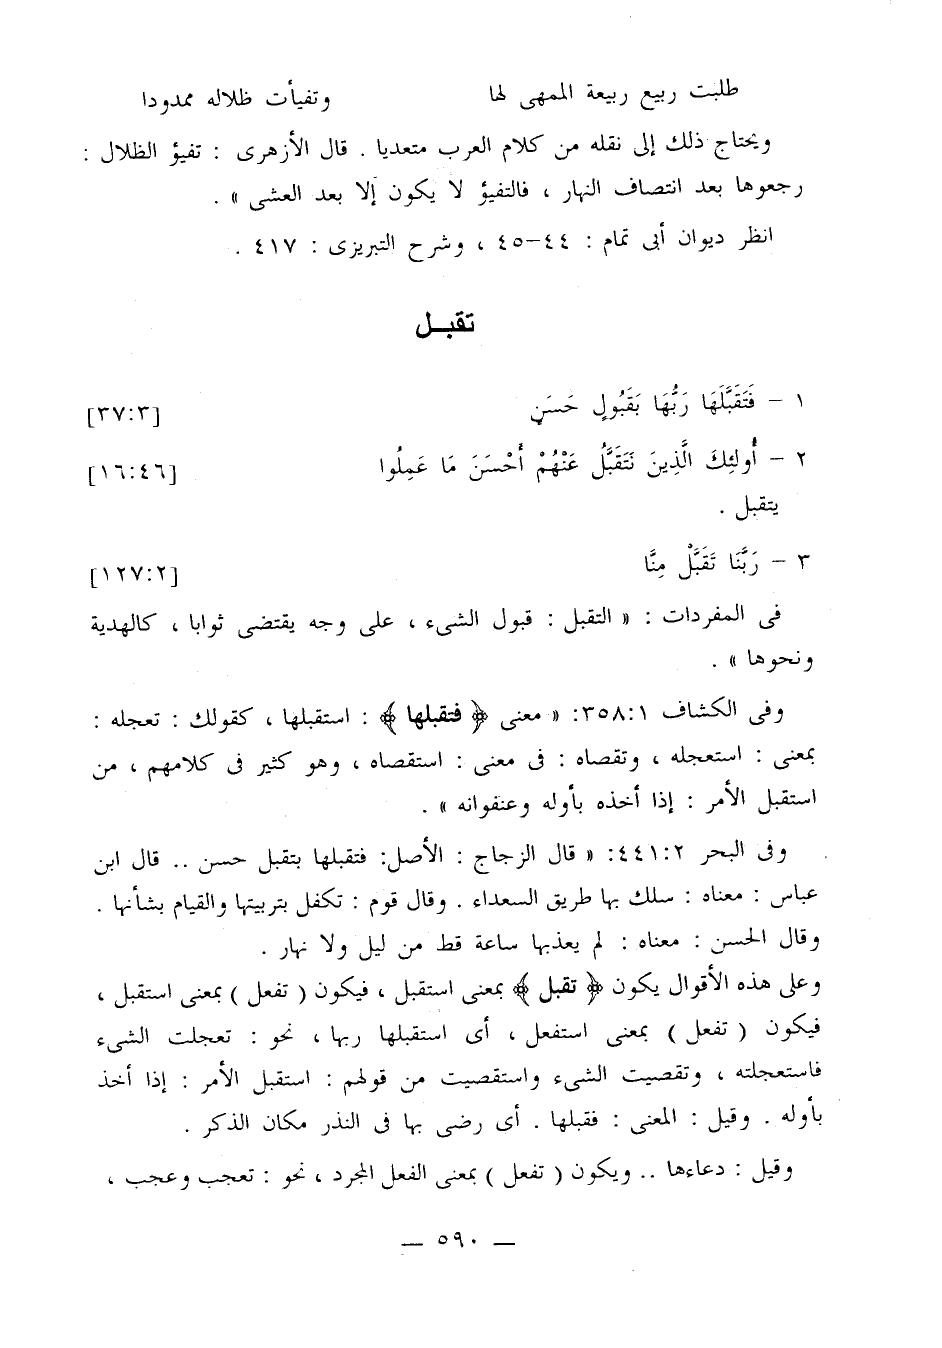 طلبت ربيع ربيعة الممهى لها وتفيأت ظلاله ممدودا
ويحتاج ذلك إلى نقله من كلام العرب متعديا . قال الأزهرى : تفيؤ الظلال :
رجعوها بعد انتصاف النهار ، فالتفيؤ لا يكون إلا بعد العشى » .
انظر ديوان أبى تمام : ٤٤-٤٥ ، وشرح التبريزى : ٤١٧ .
تقبـل
١ - فَتَقَبَّلَهَا رَبُّهَا بَقَبُولٍ حَسَنٍ [٣٧:٣]
٢ - أُولئِكَ الَّذِينَ نَتَقَبَّلُ عَنْهُمْ أَحْسَنَ مَا عَمِلُوا [١٦:٤٦]
يتقبل .
٣ - رَبَّنَا تَقَبَّلْ مِنَّا [١٢٧:٢]
فى المفردات : « التقبل : قبول الشىء ، على وجه يقتضى ثوابا ، كالهدية
ونحوها » .
وفى الكشاف ٣٥٨:١: « معنى ﴿ فتقبلها ﴾ : استقبلها ، كقولك : تعجله :
بمعنى : استعجله ، وتقصاه : فى معنى : استقصاه ، وهو كثير فى كلامهم ، من
استقبل الأمر : إذا أخذه بأوله وعنفوانه » .
وفى البحر ٤٤١:٢: « قال الزجاج : الأصل: فتقبلها بتقبل حسن .. قال ابن
عباس : معناه : سلك بها طريق السعداء . وقال قوم : تكفل بتربيتها والقيام بشأنها .
وقال الحسن : معناه : لم يعذبها ساعة قط من ليل ولا نهار .
وعلى هذه الأقوال يكون ﴿ تقبل ﴾ بمعنى استقبل ، فيكون ( تفعل ) بمعنى استقبل ،
فيكون ( تفعل ) بمعنى استفعل ، أى استقبلها ربها ، نحو : تعجلت الشىء
فاستعجلته ، وتقصيت الشىء واستقصيت من قولهم : استقبل الأمر : إذا أخذ
بأوله . وقيل : المعنى : فقبلها . أى رضى بها فى النذر مكان الذكر .
وقيل : دعاءها .. ويكون ( تفعل ) بمعنى الفعل المجرد ، نحو : تعجب وعجب ،
— ٥٩٠ —